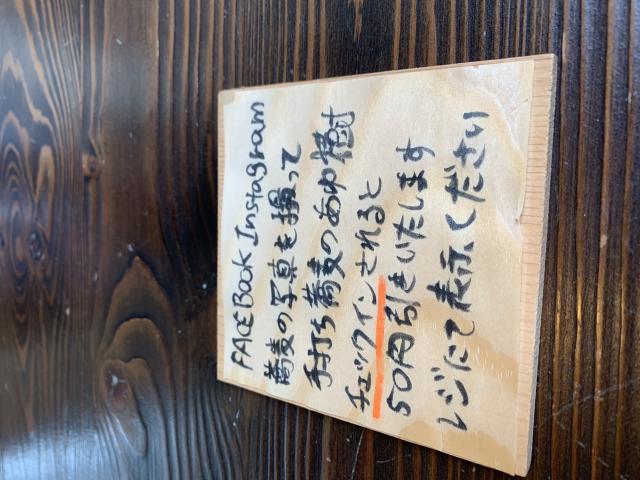 FACEBOOK Instagram
蕎麦の写真を撮って
手打ち蕎麦のあゆ樹
チェックインされると
50円引きいたします
レジにて表示ください